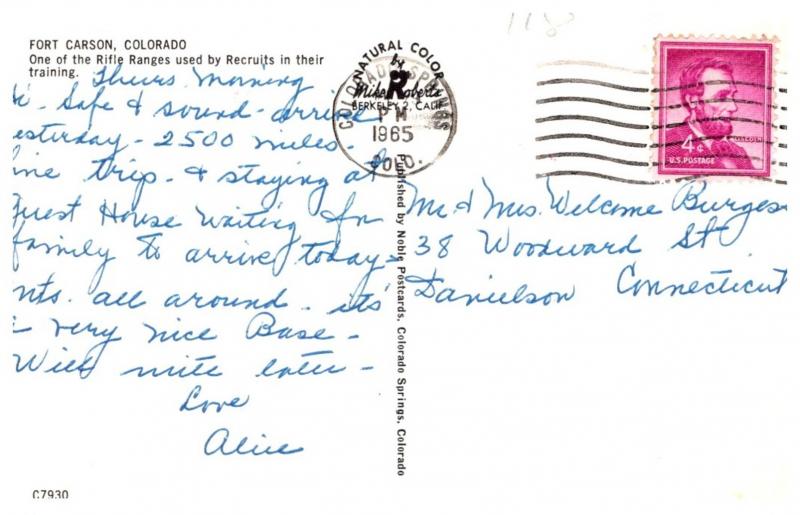 FORT CARSON, COLORADO
One of the Rifle Ranges used by Recruits in their
training.
Thurs. Morning
Safe & sound - arrive
esterday - 2500 miles -
ine trip - & staying at
Guest House waiting for
family to arrive today -
nts. all around - it's
a very nice Base -
Will write later -
Love
Alice
C7930
NATURAL COLOR
by
R
Mike Roberts
BERKELEY 2, CALIF
COLORADO SPRINGS
PM
1965
COLO.
Published by Noble Postcards, Colorado Springs, Colorado
4¢
LINCOLN
U.S. POSTAGE
Mr. & Mrs. Welcome Burges
38 Woodward St
Danielson Connecticut